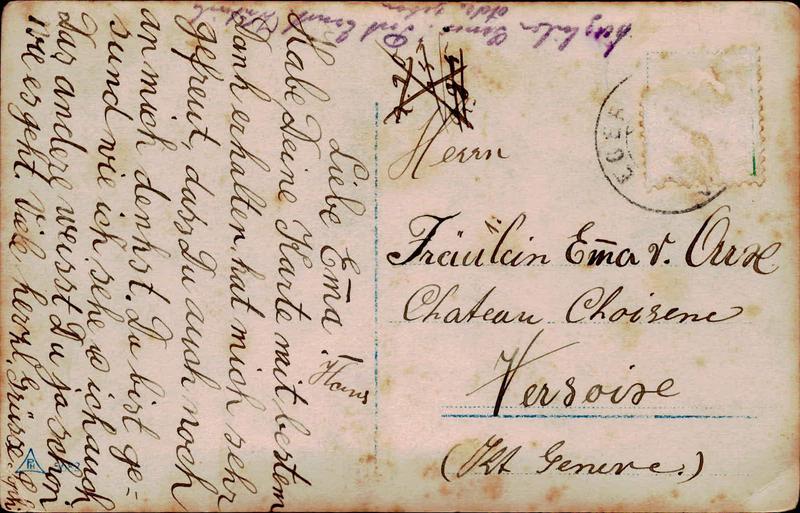 Liebe Em̄a!
Habe Deine Karte mit bestem
Dank erhalten, hat mich sehr
gefreut, dass Du auch noch
an mich denkst. Du bist ge-
sund wie ich sehe u ich auch
Das andere weisst Du ja schon
wie es geht. Viele herzl. Grüsse
Hans
Herrn
Fräulein Em̄a v. Arx
Chateau Choisene
Versoixe
(Kt Geneve.)
EGER